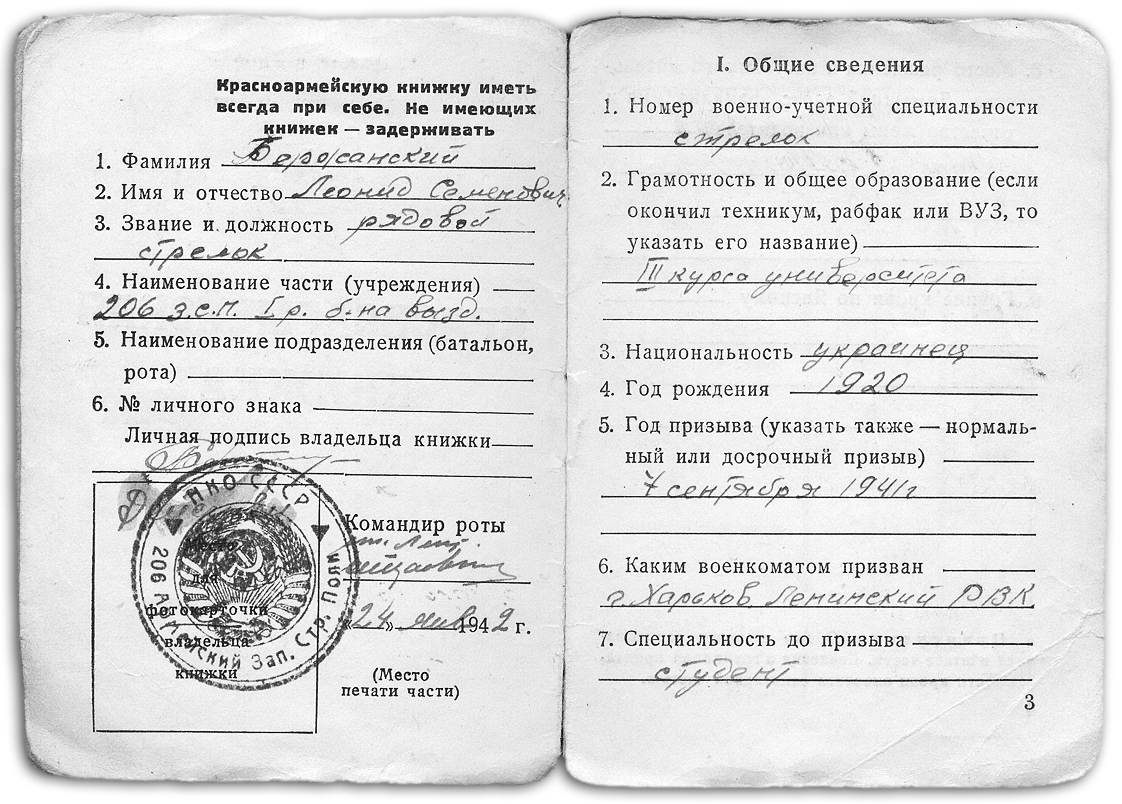 Красноармейскую книжку иметь
всегда при себе. Не имеющих
книжек — задерживать
1. Фамилия Бержанский
2. Имя и отчество Леонид Семенович
3. Звание и должность рядовой
стрелок
4. Наименование части (учреждения)
206 з.с.п. I р. б-на вызд.
5. Наименование подразделения (батальон,
рота)
6. № личного знака
Личная подпись владельца книжки
НКО СССР
206 Армейский Зап. Стр. Полк
Место
для
фотокарточки
владельца
книжки
Командир роты
ст. Лейт.
«24» янв 1942 г.
(Место
печати части)
I. Общие сведения
1. Номер военно-учетной специальности
стрелок
2. Грамотность и общее образование (если
окончил техникум, рабфак или ВУЗ, то
указать его название)
III курса университета
3. Национальность украинец
4. Год рождения 1920
5. Год призыва (указать также — нормаль-
ный или досрочный призыв)
7 сентября 1941г
6. Каким военкоматом призван
г. Харьков Ленинский РВК
7. Специальность до призыва
студент
3